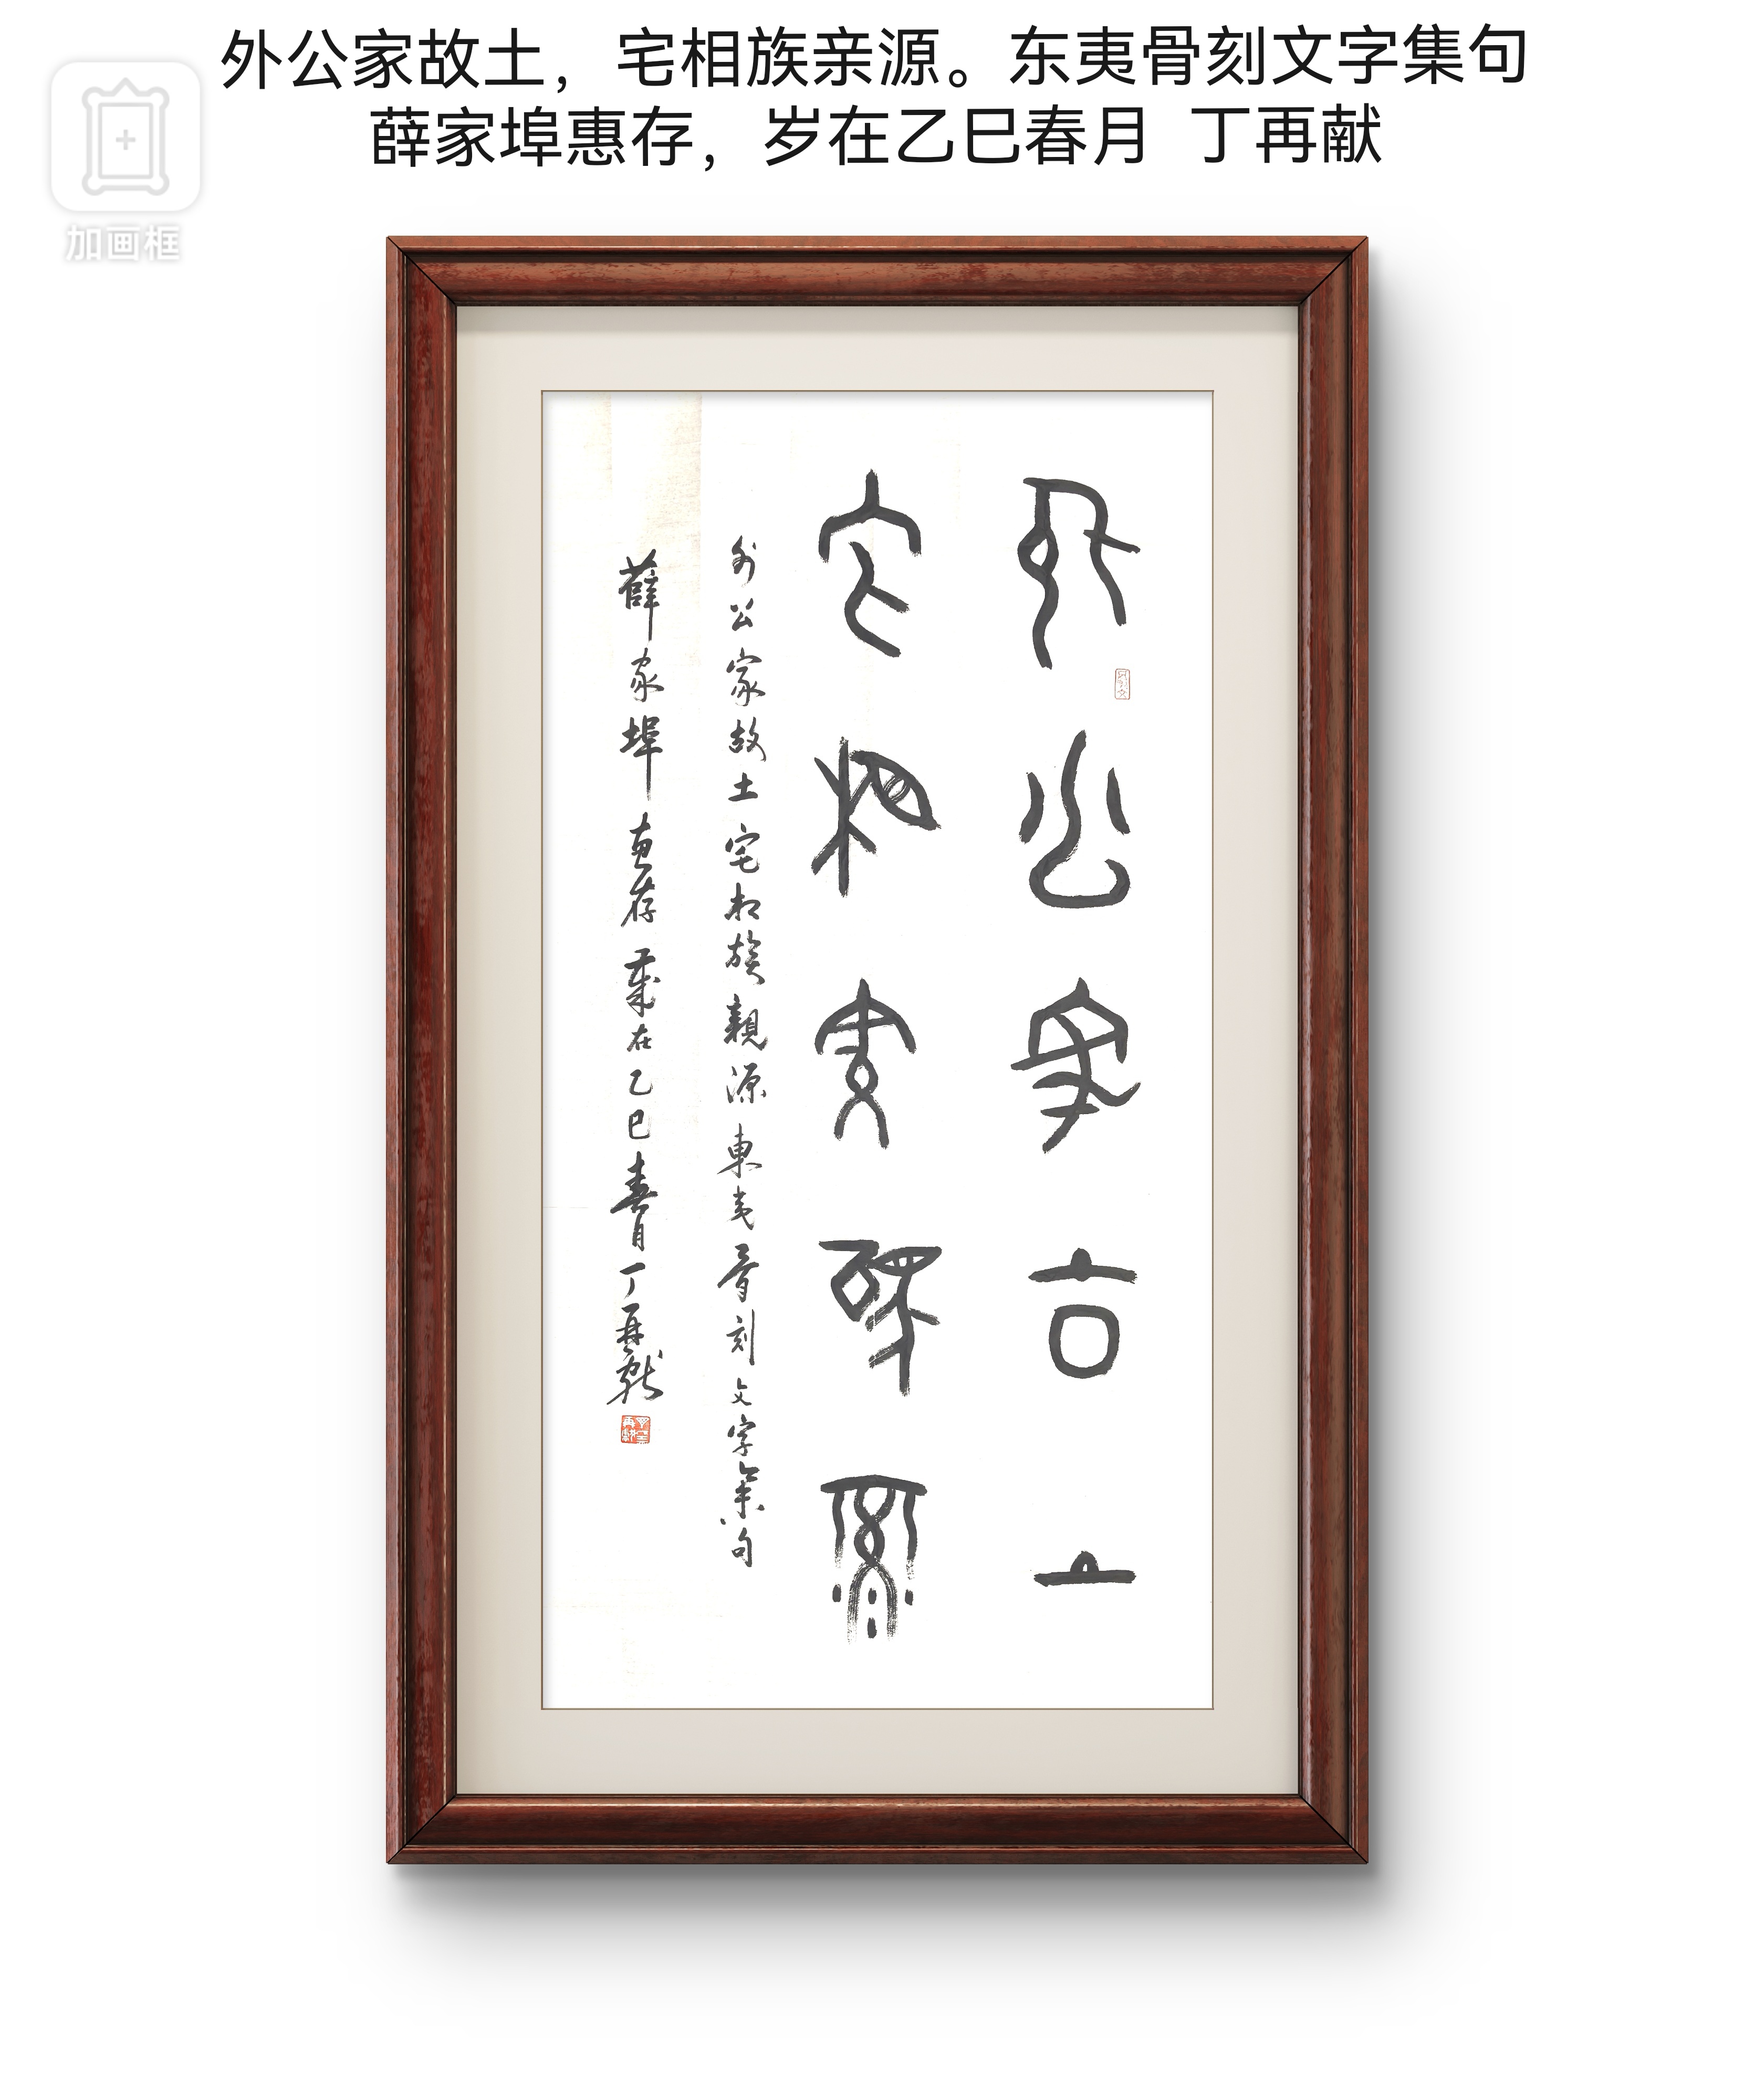 外公家故土，宅相族亲源。东夷骨刻文字集句
薛家埠惠存，岁在乙巳春月 丁再献
加画框
外公家故土
宅相族親源
外公家故土宅相族親源東夷骨刻文字集句
薛家埠惠存歲在乙巳春月丁再献